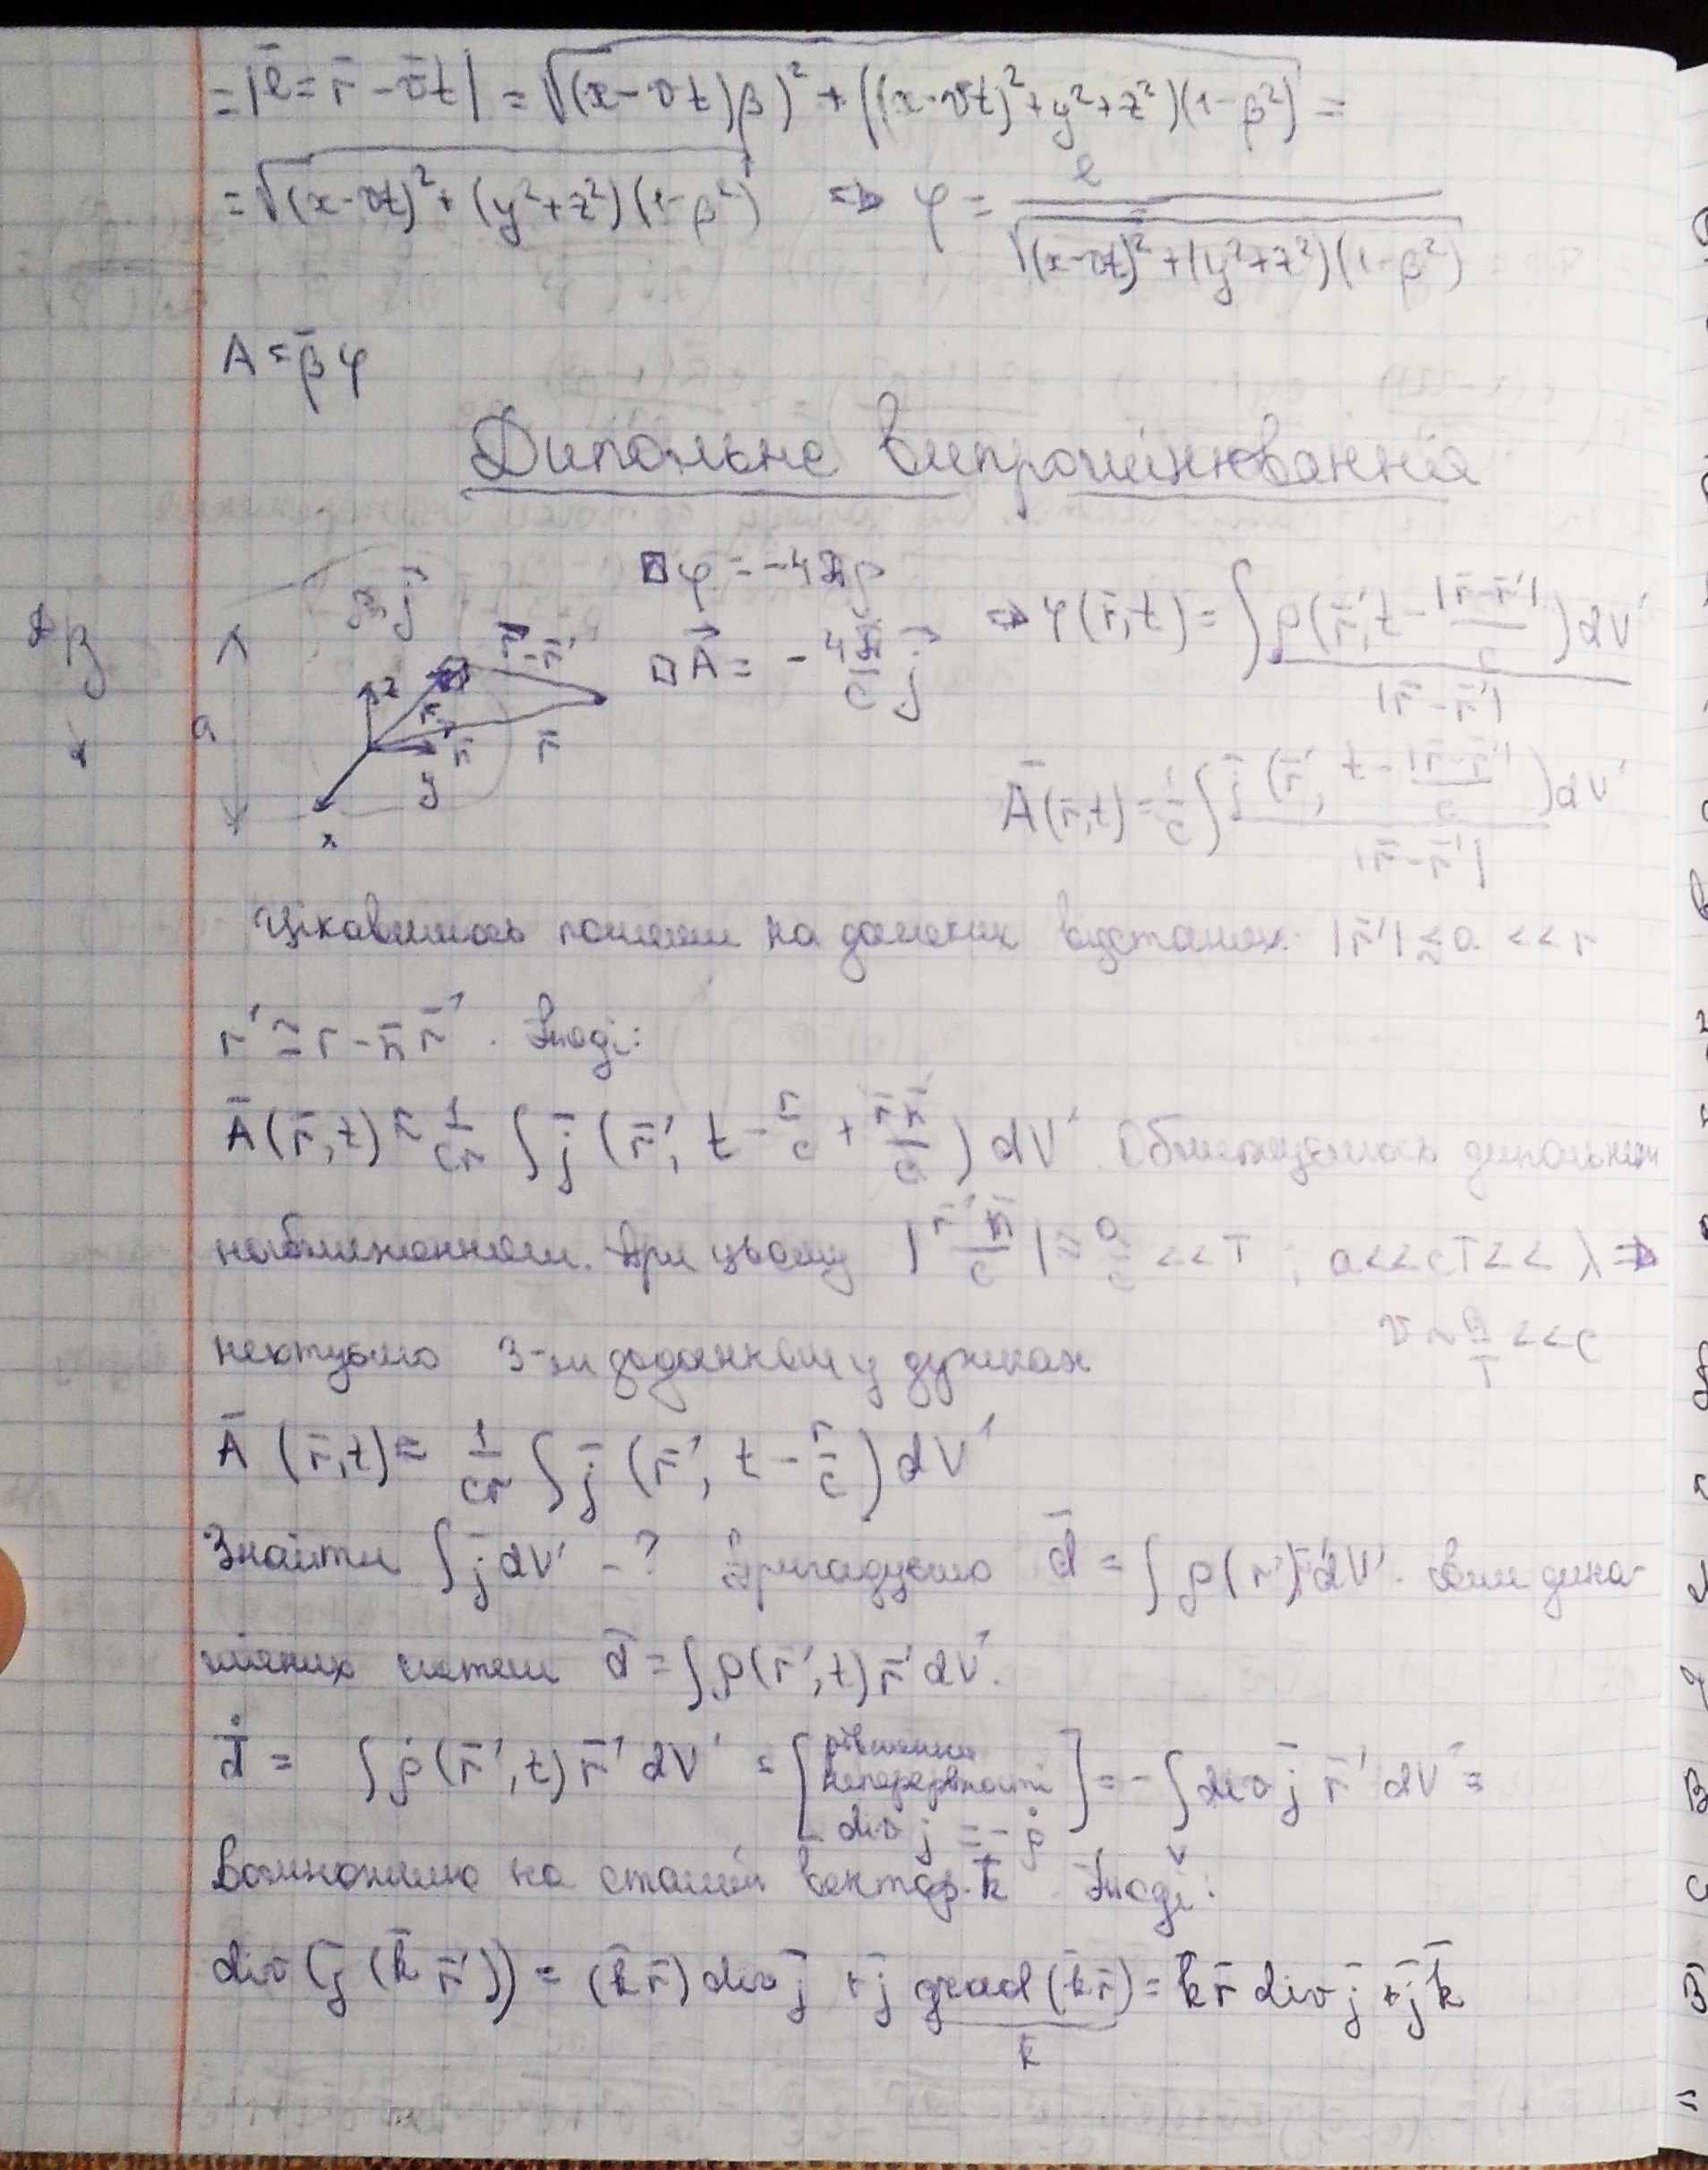 = |ē = r̄ - v̄t| = √((x-vt)β)² + ((x-vt)² + y² + z²)(1-β²) =
= √(x-vt)² + (y²+z²)(1-β²) => φ = e / √(x-vt)² + (y²+z²)(1-β²)
A = β̄φ
Дипольне випромінювання
□φ = -4πρ => φ(r̄,t) = ∫ ρ(r̄', t - |r̄-r̄'|/c) dV' / |r̄-r̄'|
□A⃗ = - 4π/c j⃗
j⃗ r̄-r̄' z r̄' n̄ r̄ a y x
Ā(r̄,t) = 1/c ∫ j̄(r̄', t - |r̄-r̄'|/c) dV' / |r̄-r̄'|
Цікавимось полями на далеких відстанях. |r̄'| ≲ a << r
r' ≅ r - n̄ r̄'. Тоді:
Ā(r̄,t) ≈ 1/cr ∫ j̄(r̄', t - r/c + r̄'n̄/c) dV'. Обмежуємось дипольним
наближенням. При цьому |r̄'n̄/c| ≈ a/c << T ; a << cT << λ =>
v ~ a/T << c
нехтуємо 3-м доданком у дужках
Ā(r̄,t) = 1/cr ∫ j̄(r̄', t - r/c) dV'
Знайти ∫ j̄ dV' - ? Пригадуємо d̄ = ∫ ρ(r')r̄'dV'. Для дина-
мічних систем d̄ = ∫ ρ(r̄',t) r̄' dV'.
d̄̇ = ∫ ρ̇(r̄',t) r̄' dV' = [рівняння неперервності div j̄ = -ρ̇] = - ∫ div j̄ r̄' dV' =
Домножимо на сталий вектор k̄. Тоді:
div(j̄(k̄ r̄')) = (k̄r̄) div j̄ + j̄ grad(k̄r̄) = k̄r̄ div j̄ + j̄k̄
k̄